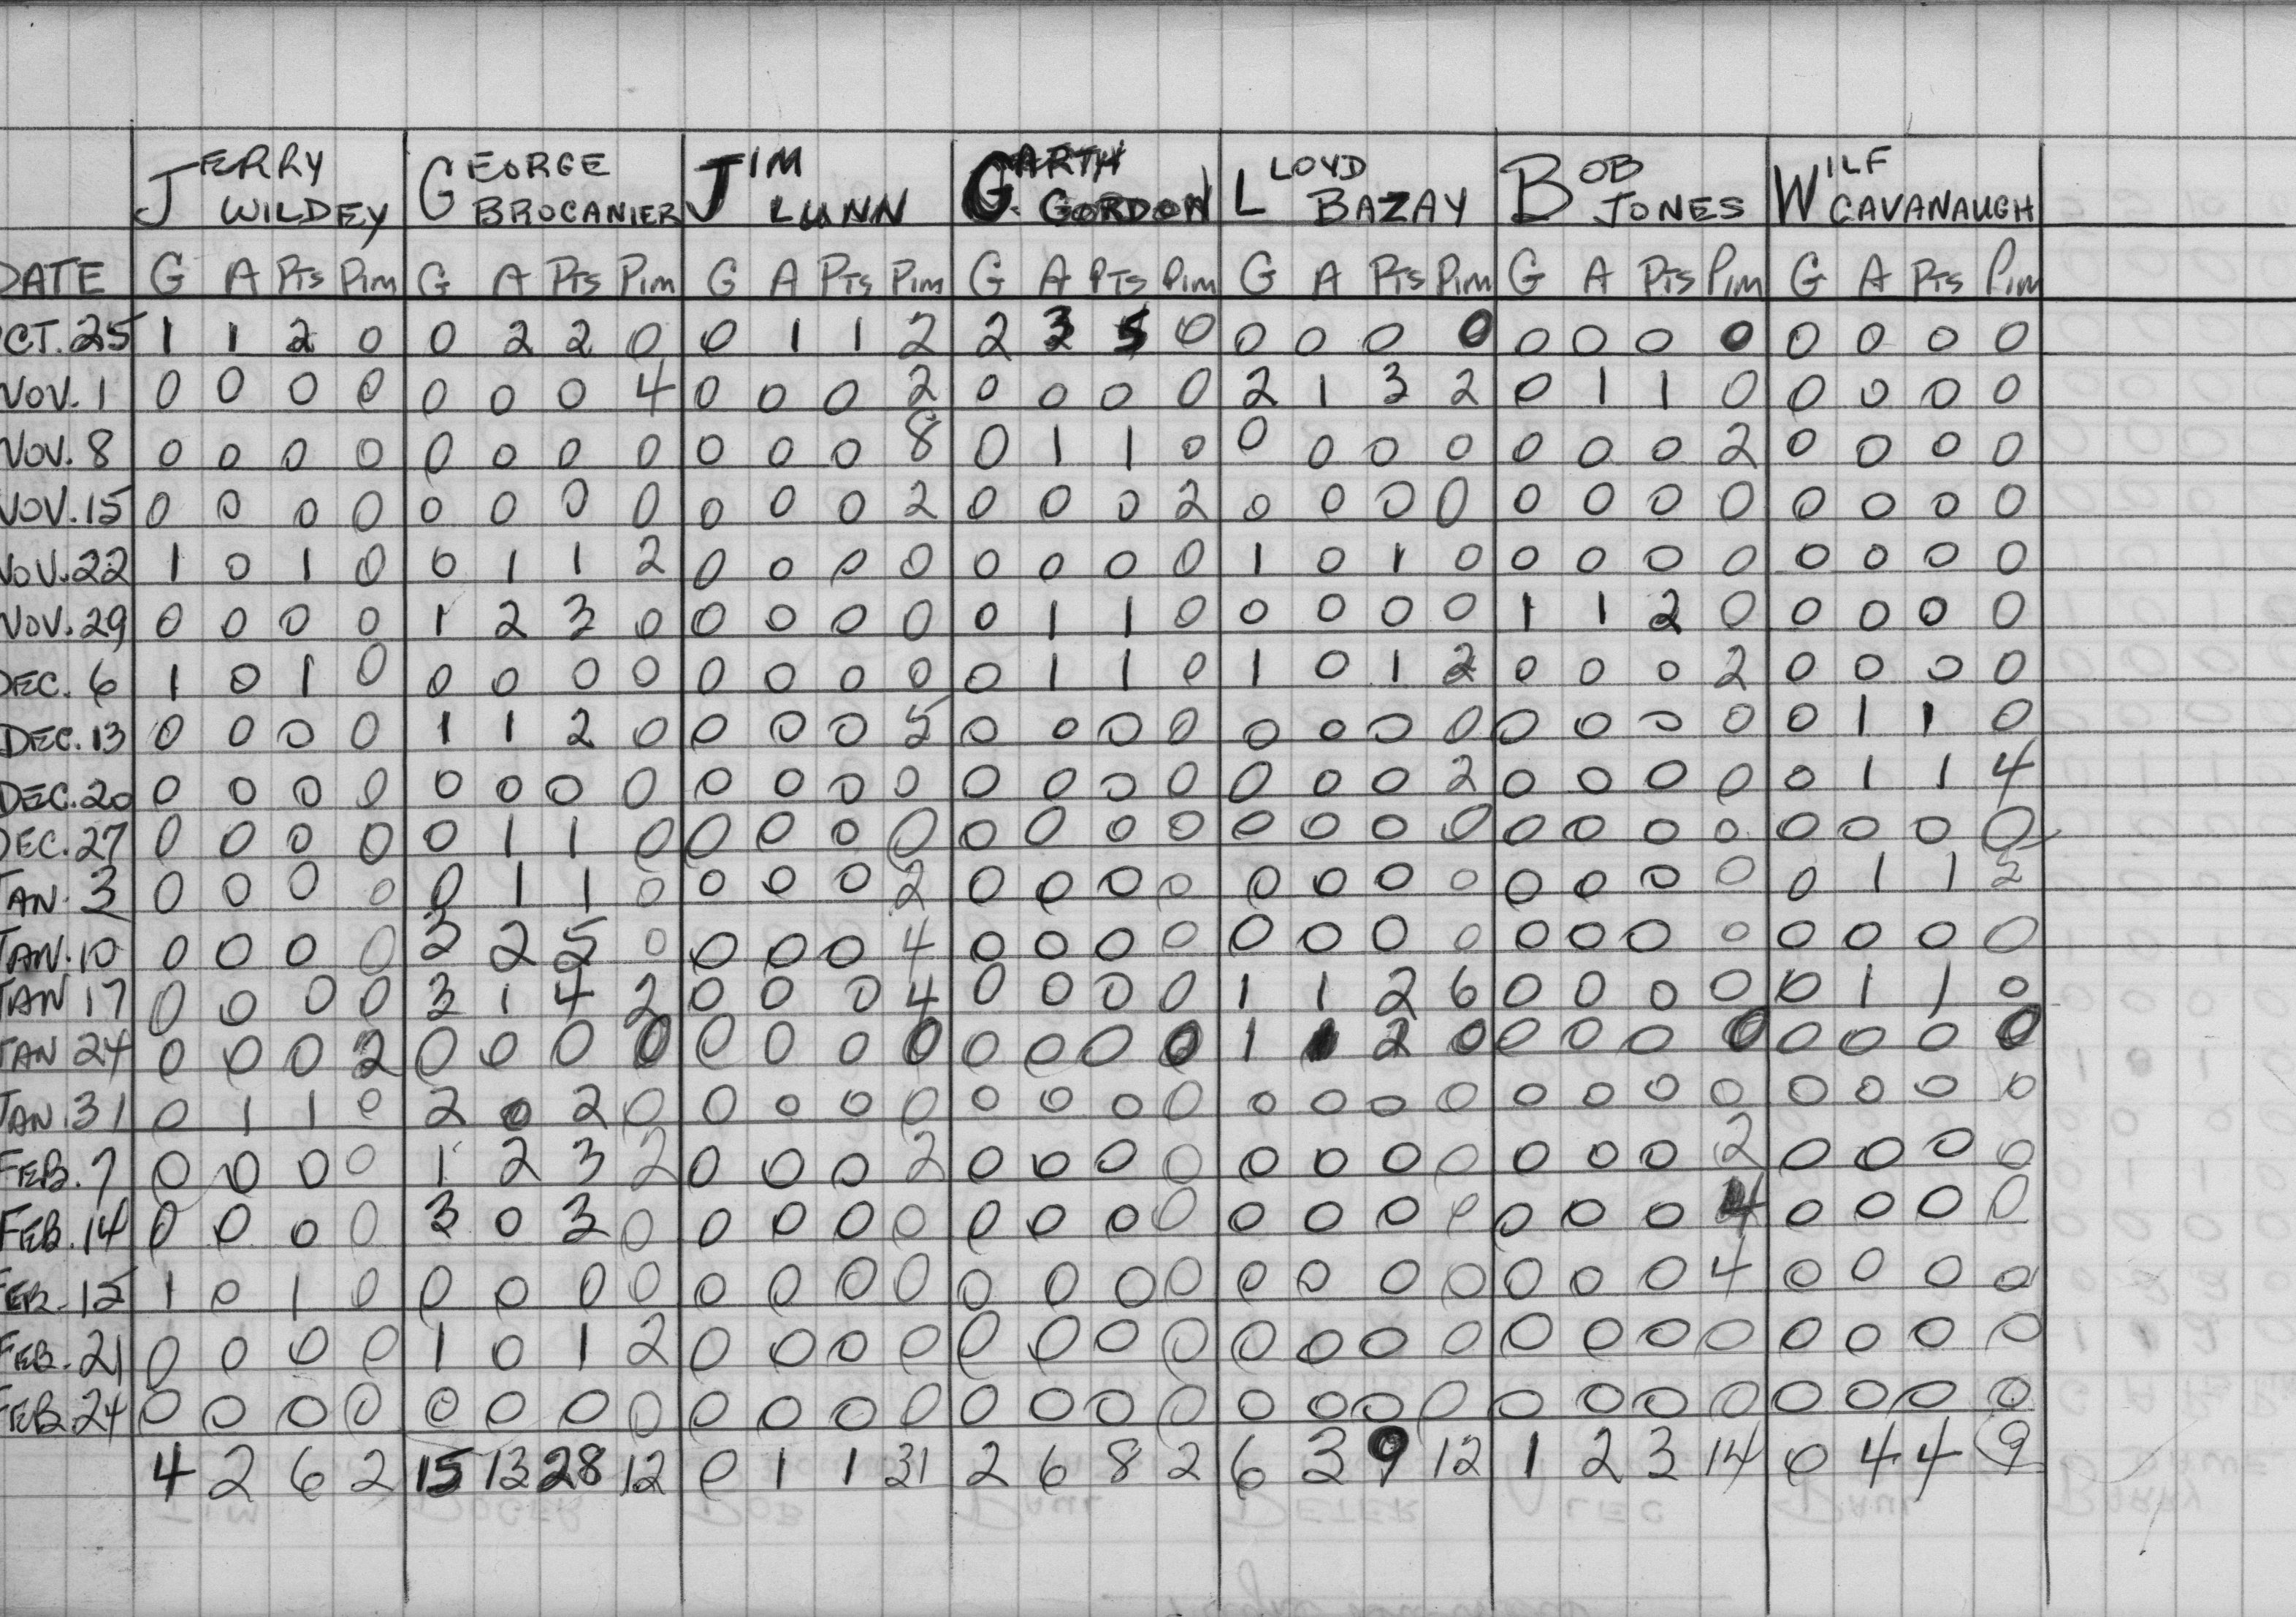 JERRY WILDEY GEORGE BROCANIER JIM LUNN GARTH GORDON LLOYD BAZAY BOB JONES WILF CAVANAUGH
DATE G A Pts Pim G A Pts Pim G A Pts Pim G A Pts Pim G A Pts Pim G A Pts Pim G A Pts Pim
OCT. 25 1 1 2 0 0 2 2 0 0 1 1 2 2 3 5 0 0 0 0 0 0 0 0 0 0 0 0 0
NOV. 1 0 0 0 0 0 0 0 4 0 0 0 2 0 0 0 0 2 1 3 2 0 1 1 0 0 0 0 0
NOV. 8 0 0 0 0 0 0 0 0 0 0 0 8 0 1 1 0 0 0 0 0 0 0 0 2 0 0 0 0
NOV. 15 0 0 0 0 0 0 0 0 0 0 0 2 0 0 0 2 0 0 0 0 0 0 0 0 0 0 0 0
NOV. 22 1 0 1 0 0 1 1 2 0 0 0 0 0 0 0 0 1 0 1 0 0 0 0 0 0 0 0 0
NOV. 29 0 0 0 0 1 2 3 0 0 0 0 0 0 1 1 0 0 0 0 0 1 1 2 0 0 0 0 0
DEC. 6 1 0 1 0 0 0 0 0 0 0 0 0 0 1 1 0 1 0 1 2 0 0 0 2 0 0 0 0
DEC. 13 0 0 0 0 1 1 2 0 0 0 0 5 0 0 0 0 0 0 0 0 0 0 0 0 0 1 1 0
DEC. 20 0 0 0 0 0 0 0 0 0 0 0 0 0 0 0 0 0 0 0 2 0 0 0 0 0 1 1 4
DEC. 27 0 0 0 0 0 1 1 0 0 0 0 0 0 0 0 0 0 0 0 0 0 0 0 0 0 0 0 0
JAN. 3 0 0 0 0 0 1 1 0 0 0 0 2 0 0 0 0 0 0 0 0 0 0 0 0 0 1 1
JAN. 10 0 0 0 0 3 2 5 0 0 0 0 4 0 0 0 0 0 0 0 0 0 0 0 0 0 0 0 0
JAN 17 0 0 0 0 3 1 4 2 0 0 0 4 0 0 0 0 1 1 2 6 0 0 0 0 0 1 1 0
JAN 24 0 0 0 2 0 0 0 0 0 0 0 0 0 0 0 0 1 1 2 0 0 0 0 0 0 0 0 0
JAN. 31 0 1 1 0 2 0 2 0 0 0 0 0 0 0 0 0 0 0 0 0 0 0 0 0 0 0 0 0
FEB. 7 0 0 0 0 1 2 3 2 0 0 0 2 0 0 0 0 0 0 0 0 0 0 0 2 0 0 0 0
FEB. 14 0 0 0 0 3 0 3 0 0 0 0 0 0 0 0 0 0 0 0 0 0 0 0 4 0 0 0 0
FEB. 15 1 0 1 0 0 0 0 0 0 0 0 0 0 0 0 0 0 0 0 0 0 0 0 4 0 0 0 0
FEB. 21 0 0 0 0 1 0 1 2 0 0 0 0 0 0 0 0 0 0 0 0 0 0 0 0 0 0 0 0
FEB. 24 0 0 0 0 0 0 0 0 0 0 0 0 0 0 0 0 0 0 0 0 0 0 0 0 0 0 0 0
4 2 6 2 15 13 28 12 0 1 1 31 2 6 8 2 6 3 9 12 1 2 3 14 0 4 4 9